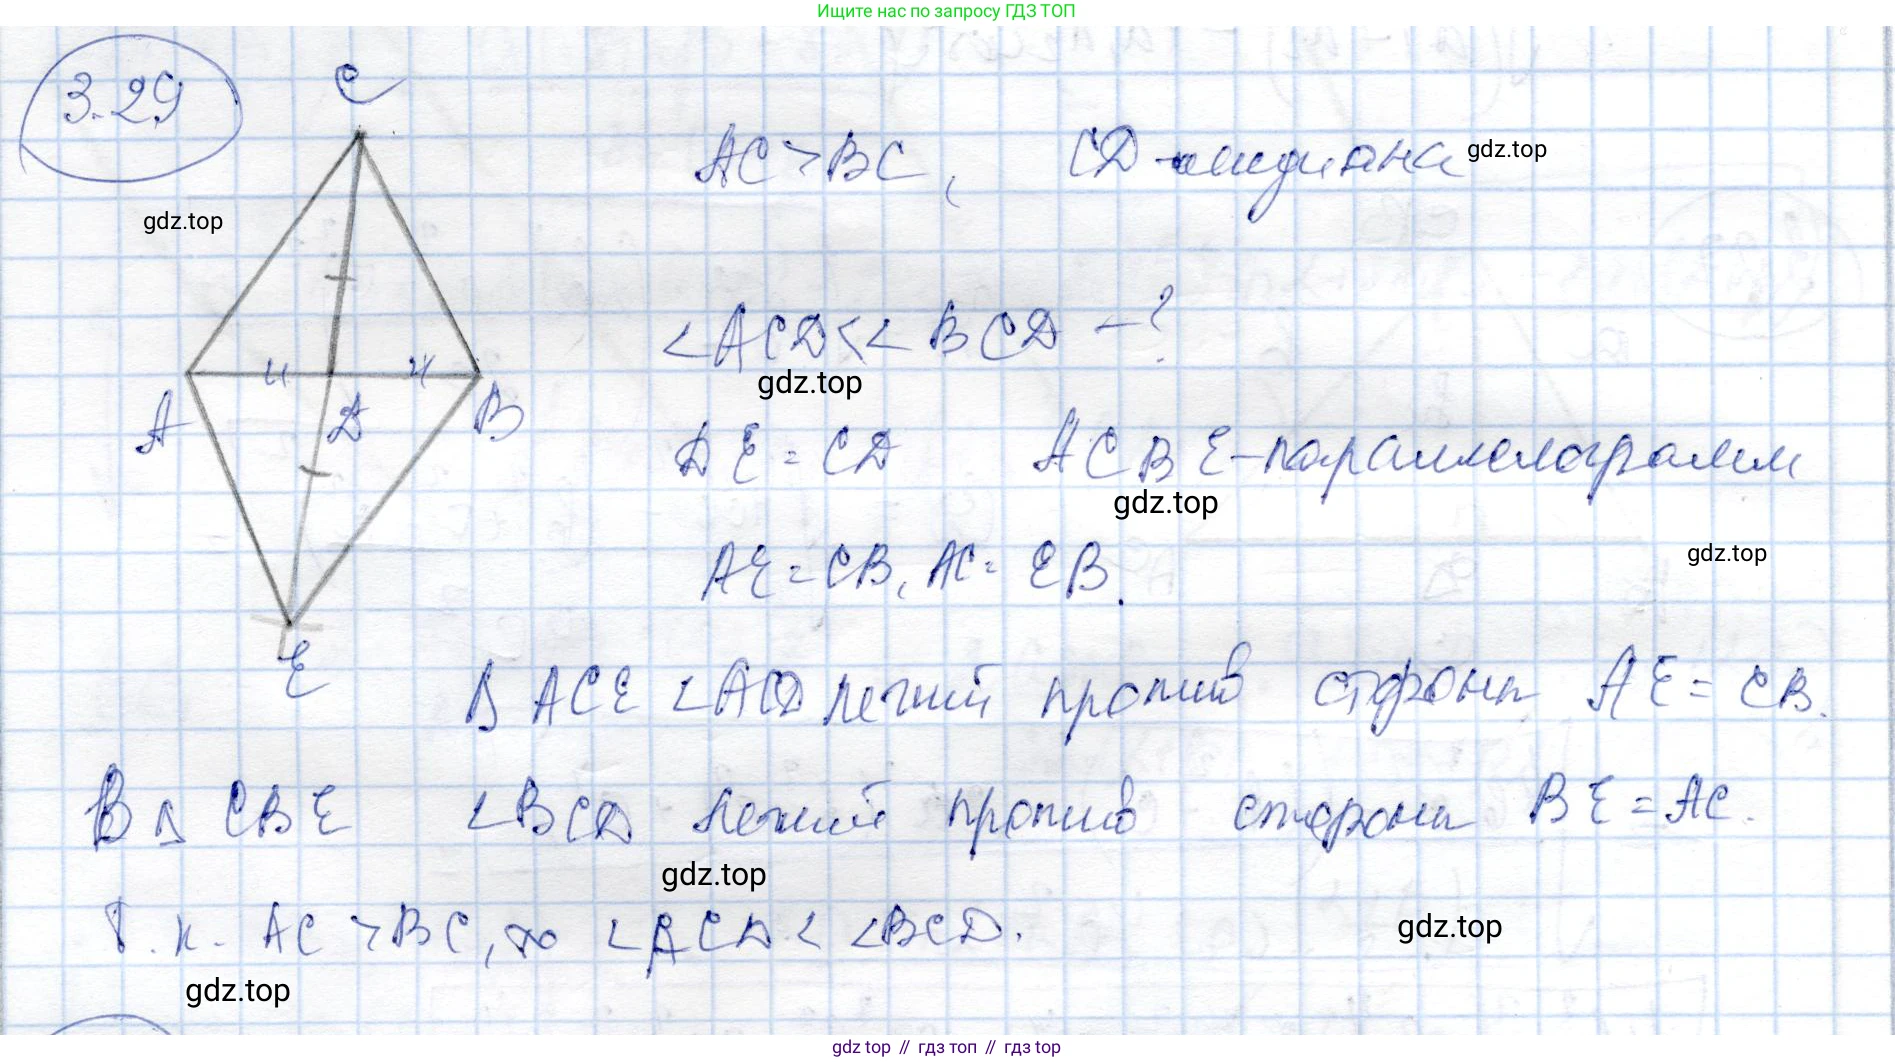 Ищите нас по запросу ГДЗ ТОП
3.29
C
AC > BC, CD - медиана gdz.top
gdz.top
<ACD < <BCD - ?
gdz.top
A D B
DE = CD ACBE - параллелограмм
gdz.top
AE = CB, AC = EB.
gdz.top
E
В ACE <ACD лежит против стороны AE = CB.
В △ CBE <BCD лежит против стороны BE = AC.
gdz.top
Т.к. AC > BC, то <ACD < <BCD.
gdz.top
gdz.top
gdz top // гдз топ // гдз top